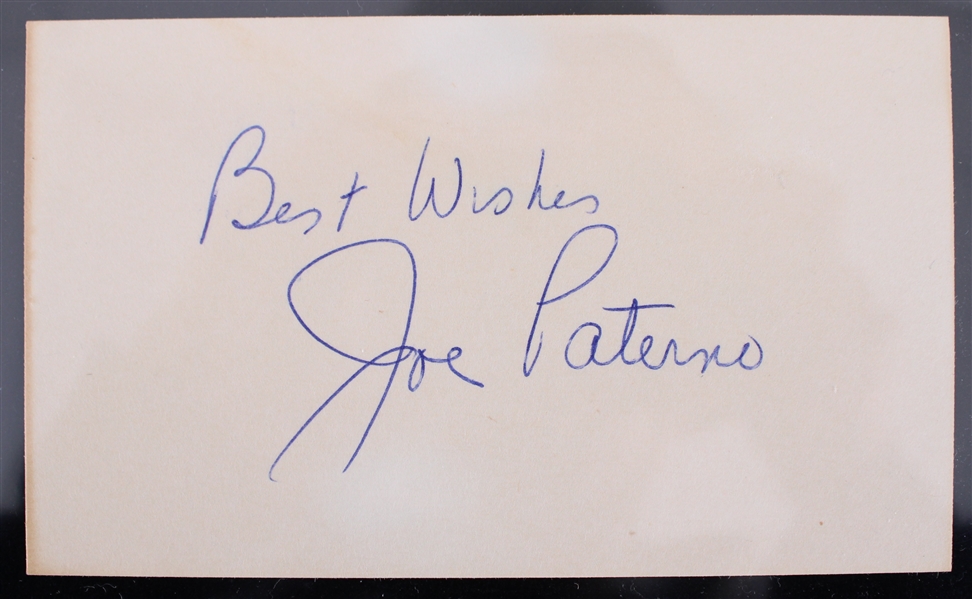 Best Wishes
Joe Paterno